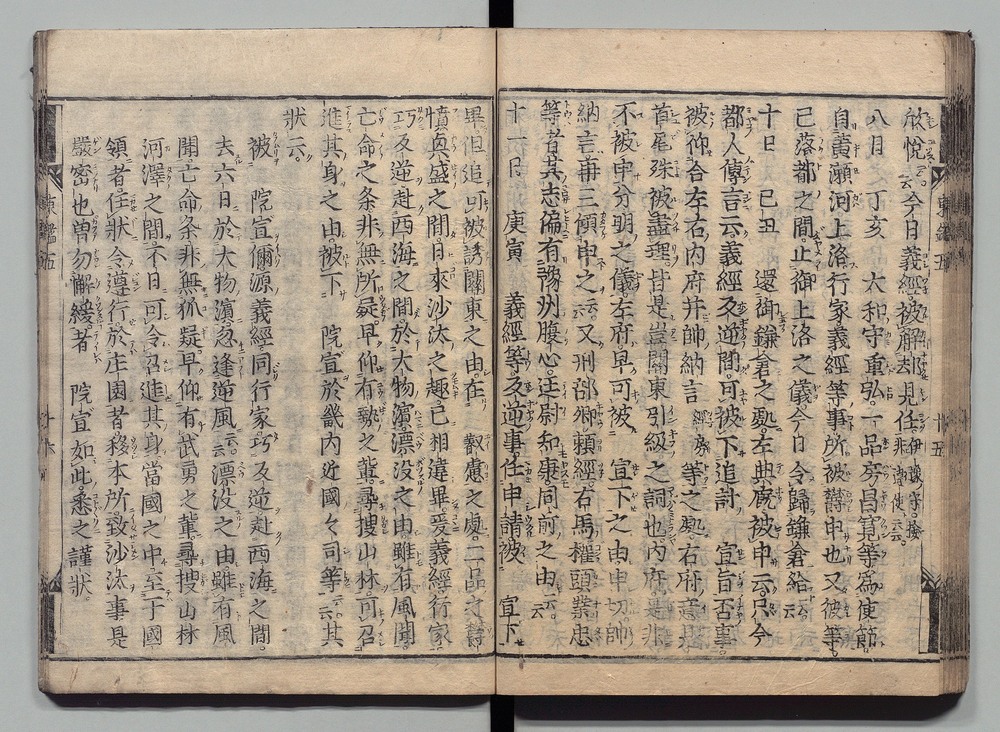 欣悦云云。今日義經被解却見任伊豫守。檢非違使。云云。
八日 丁亥 大和守重弘。一品房昌寛等爲使節
自黄瀬河上洛行家義經等事所被欝申也又彼等
已落都之間。止御上洛之儀今日令歸鎌倉給云云
十日 己丑 還御鎌倉之處左典廐被申云。只今
都人傳言云。義經反逆間。可被下追討 宣旨否事。
被仰合左右内府并帥納言經房等之處。右府意見
首尾殊被盡理皆是豈關東引級之詞也。内府是非
不被申分明之儀。左府早可被 宣下之由申切。帥
納言再三傾申之云云。又刑部卿頼經。右馬權頭業忠
等者其志偏有豫州腹心。廷尉知康同前之由云云。
十一日 庚寅 義經等反逆事任申請被 宣下
畢但追可被誘關東之由。在 叡慮之處。二品才欝
憤興盛之間。日來沙汰之趣已相違畢。爰義經行家
巧反逆赴西海之間於大物濱。漂没之由。雖有風聞。
亡命之条非無所疑。早仰有勢之輩。尋搜山林。可召
進其身之由。被下 院宣於畿内近國々司等云云其
状云。
被 院宣偁源義經同行家巧反逆赴西海之間。
去六日於大物濱忽逢逆風云云。漂没之由雖有風
聞亡命条非無狐疑早仰有武勇之輩尋搜山林
河澤之間不日可令召進其身當國之中至于國
領者任状令遵行於庄園者移本所致沙汰事是
嚴密也曽勿懈緩者 院宣如此。悉之謹状。
東鑑五
十五
東鑑五
十六